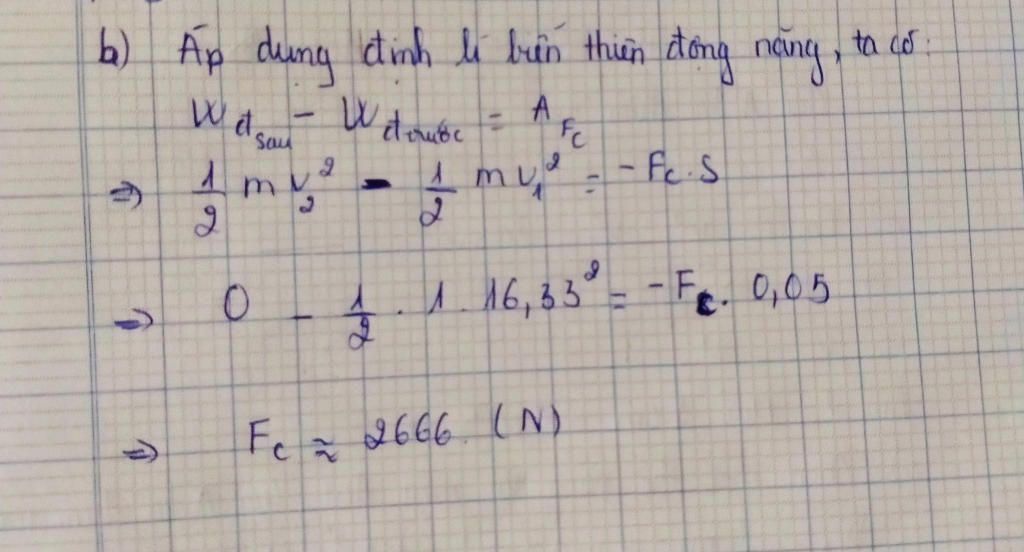 b) Áp dụng định lí biến thiên động năng, ta có:
Wđsau - Wđtrước = AFc
=> 1/2 m v₂² - 1/2 m v₁² = -Fc.S
=> 0 - 1/2 . 1 . 16,33² = -Fc. 0,05
=> Fc ≈ 2666 (N)